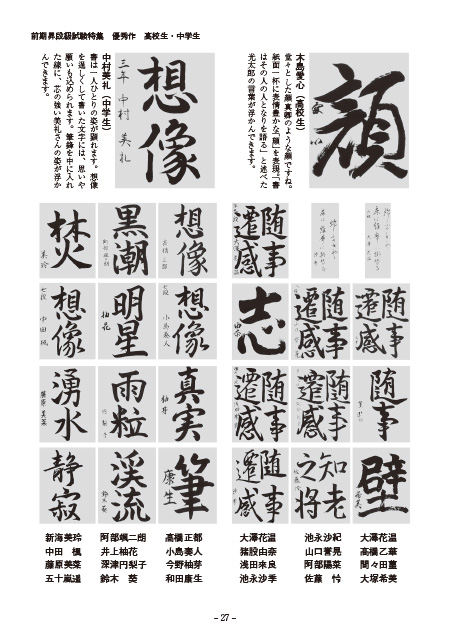 前期昇段級試験特集　優秀作　高校生・中学生
顔
木島愛心（高校生）
堂々とした顔真卿のような顔ですね。
紙面一杯に表情豊かな「顔」を表現。「書
はその人の人となりを語る」と述べた
光太郎の言葉が浮かんできます。
想像
三年　中村　美礼
中村美礼（中学生）
書は一人ひとりの姿が顕れます。想像
を逞しくして書いた文字には、思いや
願いも込められます。筆鋒を中に入れ
た線に、芯の強い美礼さんの姿が浮か
んできます。
随事遷感
随事遷感
随事遷感
志
随事
随事遷感
随事遷感
壁
知老之将
随事遷感
想像
黒潮
焚火
美玲
想像
七段　小島奏人
明星
柚花
想像
七段　中田　楓
真実
柚芽
雨粒
湧水
藤原美菜
筆
康生
渓流
鈴木葵
静寂
大澤花温
高橋乙華
間々田菫
大塚希美
池永沙紀
山口誉晃
阿部陽菜
佐藤　怜
大澤花温
猪股由奈
浅田来良
池永沙季
高橋正都
小島奏人
今野柚芽
和田康生
阿部颯二朗
井上柚花
深津円梨子
鈴木　葵
新海美玲
中田　楓
藤原美菜
五十嵐遥
– 27 –